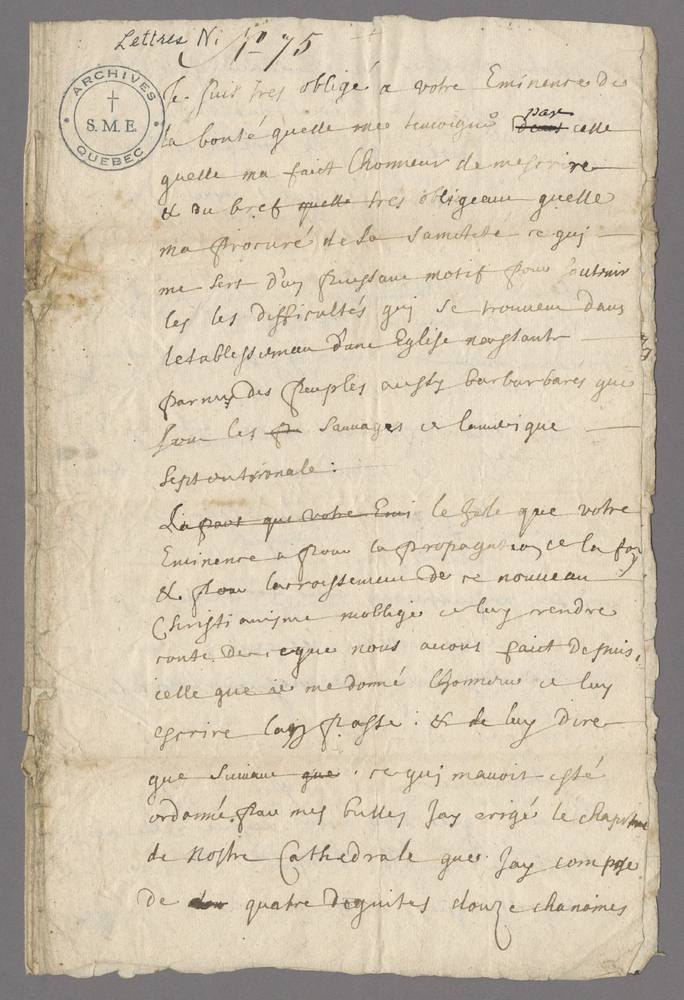 Lettres N: N° 75
ARCHIVES
S.M.E.
QUEBEC
Je suis tres obligé a votre Eminence de
la bonté quelle me temoigne dans par celle
quelle ma faict lhonneur de mescrire
& du bref quelle tres obligeant quelle
ma procuré de Sa Sainteté ce qui
me sert dun puissant motif pour soutenir
les les difficultés qui se trouvent dans
letablissement dune Eglise naissante
parmy des peuples aussy barbarbares que
sont les Sauvages de lamerique
Septentrionale :
La part que votre Emi le Zele que votre
Eminence a pour la propagation de la foy
& pour lacroissement de ce nouveau
Christianisme moblige de luy rendre
conte de ce que nous avons faict depuis
celle que ie me donné lhonneur de luy
escrire lan passé : & de luy dire
que suivant que ce qui mavoit esté
ordonné par mes bulles Jay erigé le chapitre
de nostre Cathedrale que Jay composé
de quatre dignités douze chanoines